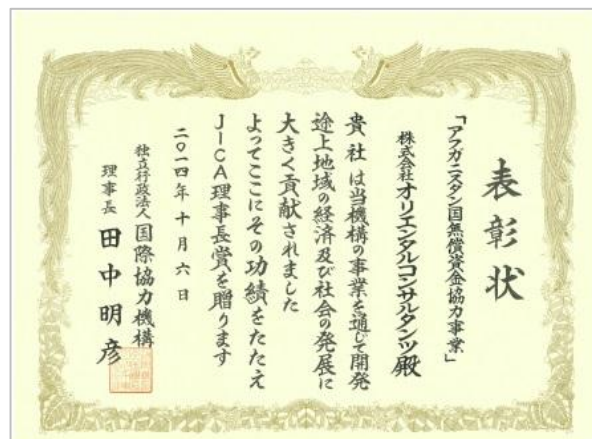 表彰状
「アフガニスタン国無償資金協力事業」
株式会社オリエンタルコンサルタンツ殿
貴社は当機構の事業を通じて開発
途上地域の経済及び社会の発展に
大きく貢献されました
よってここにその功績をたたえ
JICA理事長賞を贈ります
二〇一四年十月六日
独立行政法人国際協力機構
理事長 田中明彦